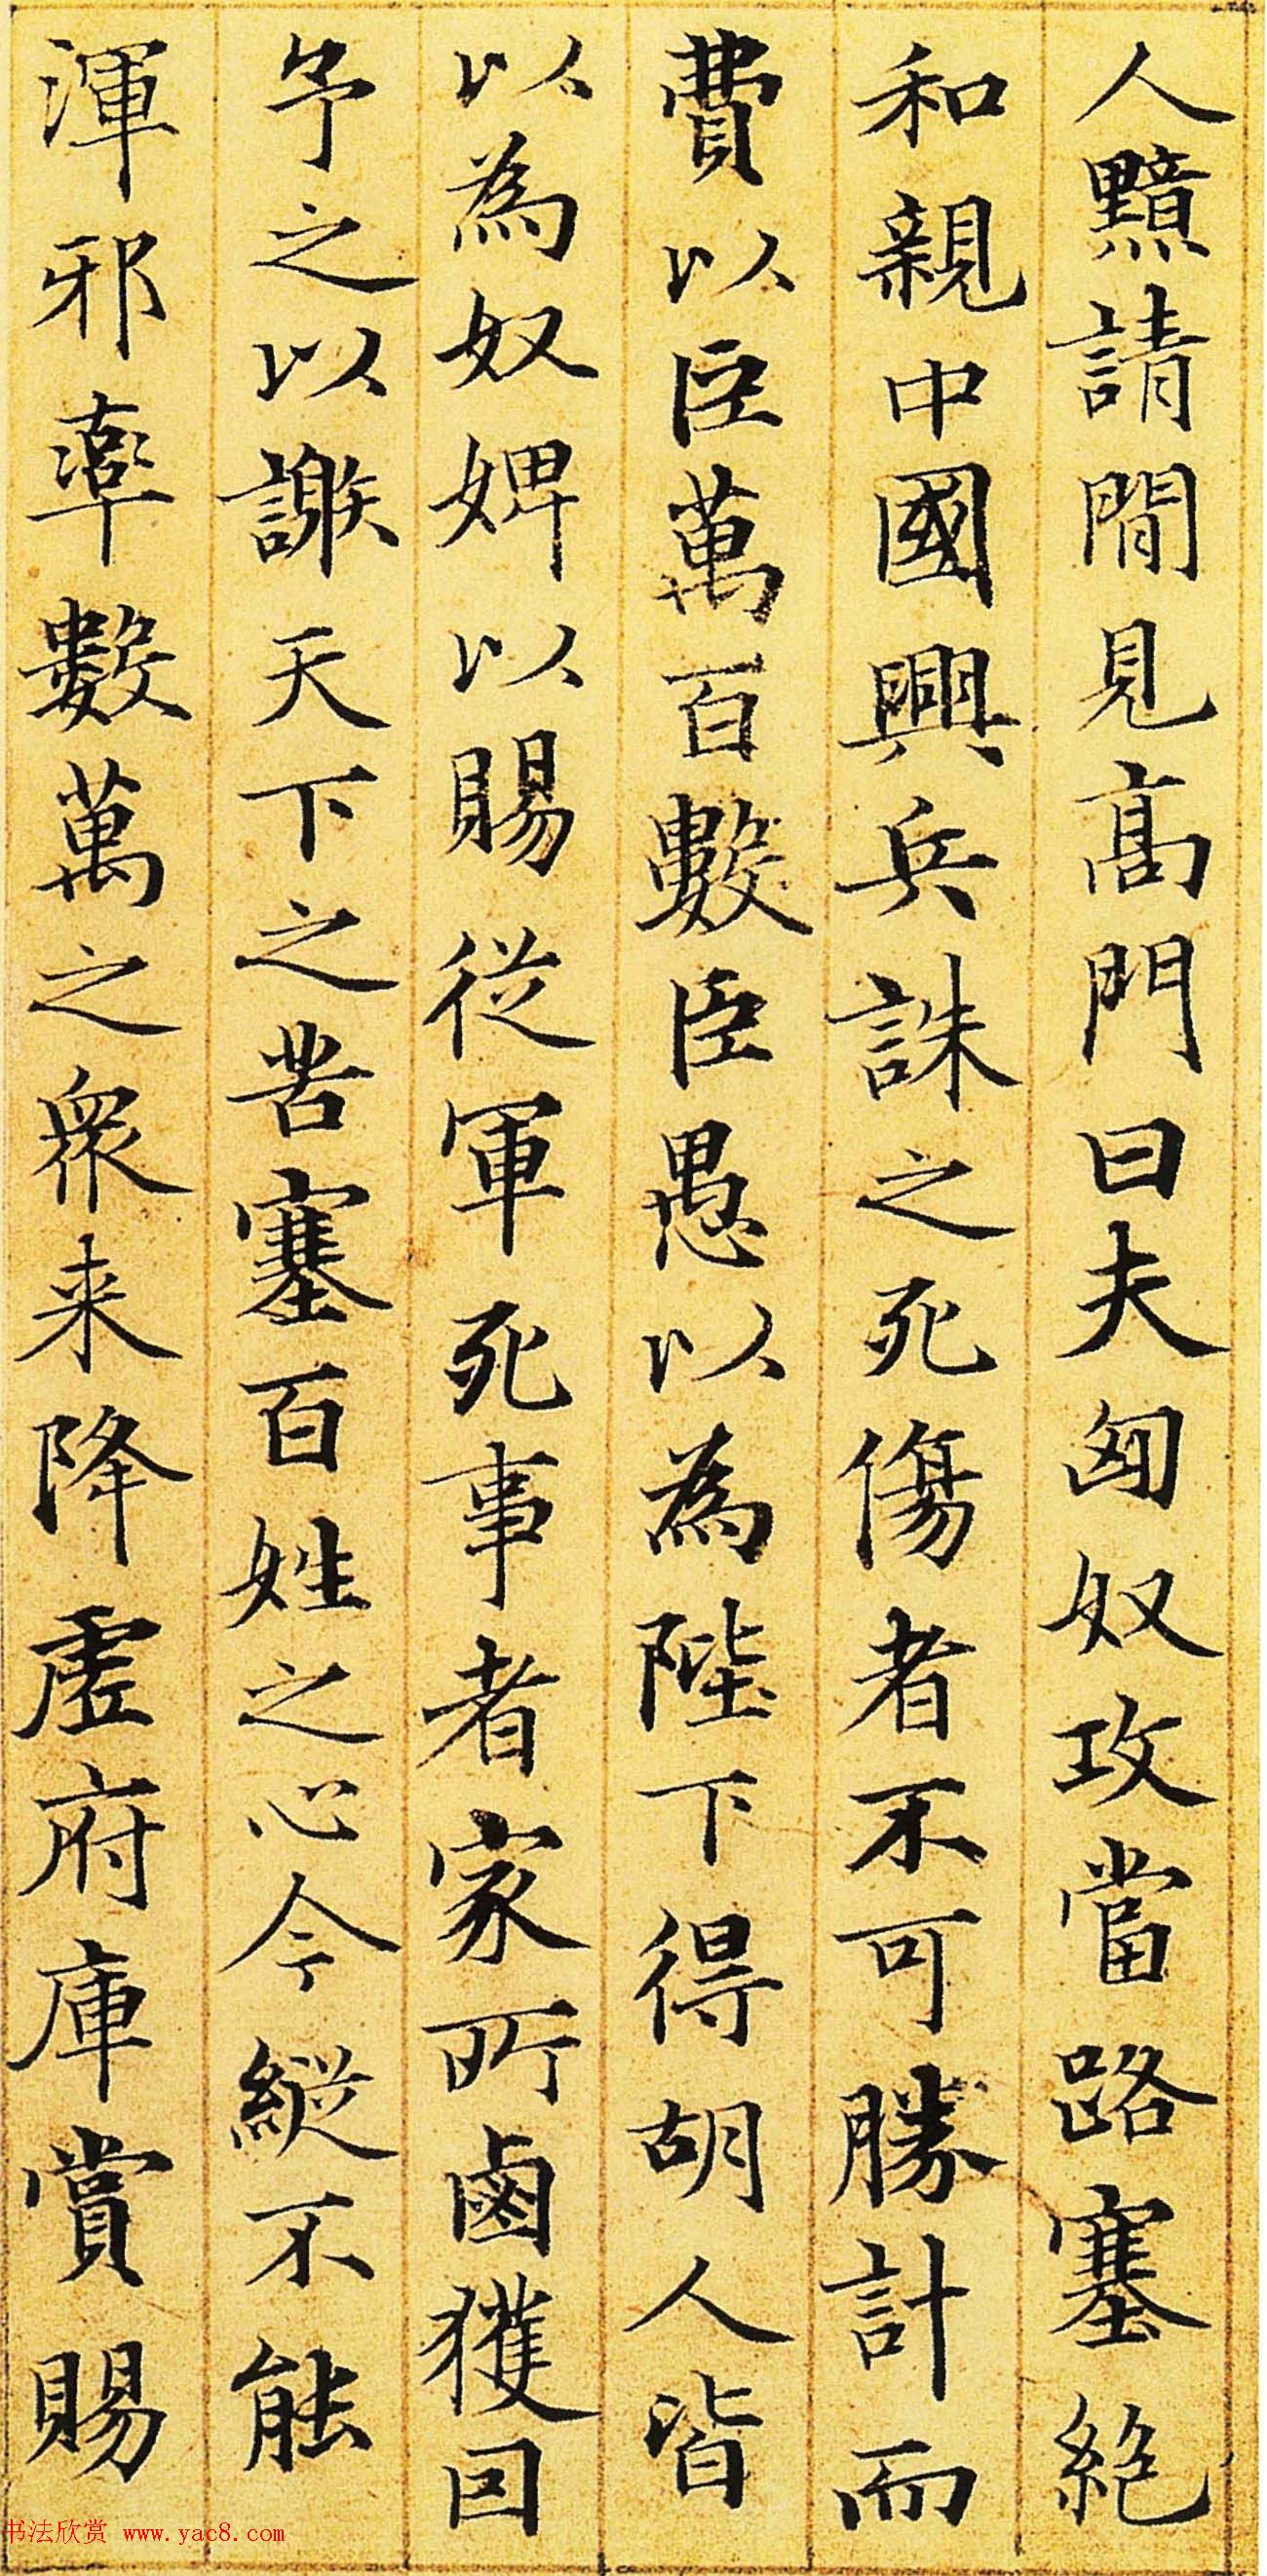 人黯請間見高門曰夫匈奴攻當路塞絶
和親中國興兵誅之死傷者不可勝計而
費以臣萬百數臣愚以為陛下得胡人皆
以為奴婢以賜從軍死事者家所鹵獲因
予之以謝天下之苦塞百姓之心今縱不能
渾邪率數萬之衆来降虛府庫賞賜
书法欣赏 www.yac8.com